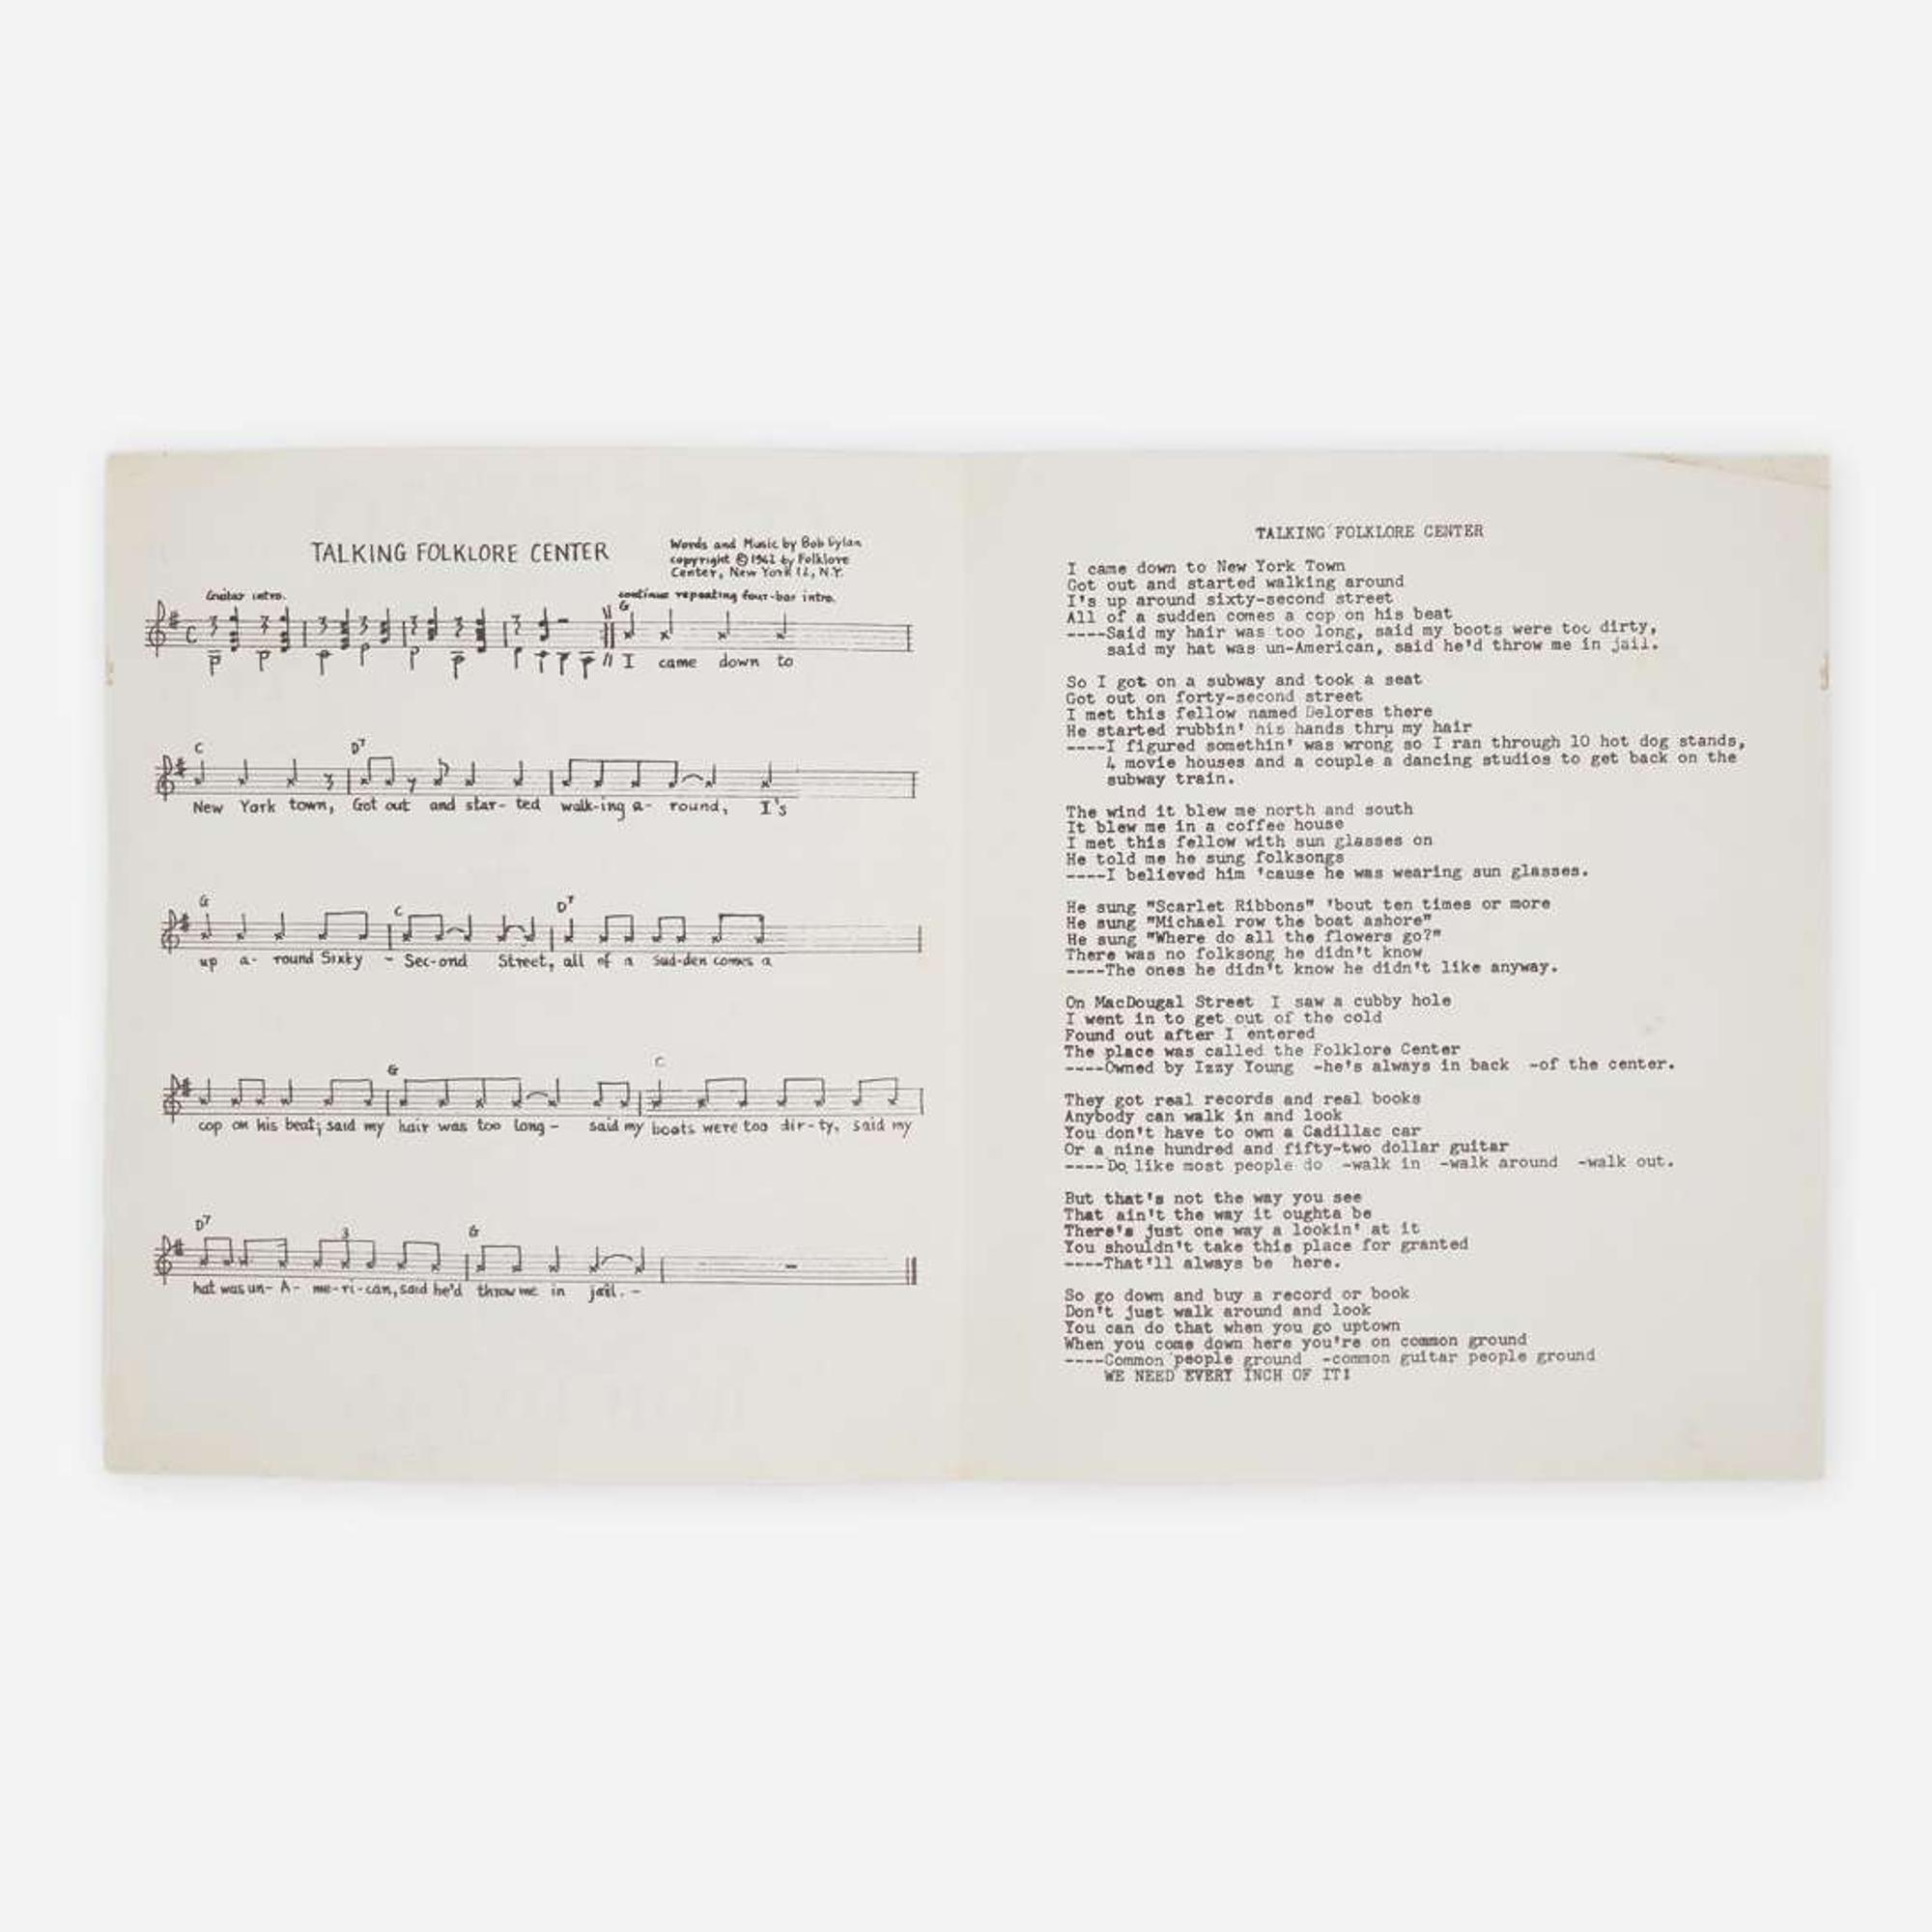 TALKING FOLKLORE CENTER
Words and Music by Bob Dylan
copyright © 1962 by Folklore
Center, New York 12, N.Y.
Guitar intro.
continue repeating four-bar intro.
G
I came down to
C D7
New York town, Got out and star- ted walk-ing a- round, I's
G C D7
up a- round Sixty - Sec-ond Street, all of a sud-den comes a
G C
cop on his beat; said my hair was too long - said my boots were too dir-ty, said my
D7 3 G
hat was un- A- me-ri-can, said he'd throw me in jail. -
TALKING FOLKLORE CENTER
I came down to New York Town
Got out and started walking around
I's up around sixty-second street
All of a sudden comes a cop on his beat
----Said my hair was too long, said my boots were too dirty,
said my hat was un-American, said he'd throw me in jail.
So I got on a subway and took a seat
Got out on forty-second street
I met this fellow named Delores there
He started rubbin' his hands thru my hair
----I figured somethin' was wrong so I ran through 10 hot dog stands,
4 movie houses and a couple a dancing studios to get back on the
subway train.
The wind it blew me north and south
It blew me in a coffee house
I met this fellow with sun glasses on
He told me he sung folksongs
----I believed him 'cause he was wearing sun glasses.
He sung "Scarlet Ribbons" 'bout ten times or more
He sung "Michael row the boat ashore"
He sung "Where do all the flowers go?"
There was no folksong he didn't know
----The ones he didn't know he didn't like anyway.
On MacDougal Street I saw a cubby hole
I went in to get out of the cold
Found out after I entered
The place was called the Folklore Center
----Owned by Izzy Young -he's always in back -of the center.
They got real records and real books
Anybody can walk in and look
You don't have to own a Cadillac car
Or a nine hundred and fifty-two dollar guitar
----Do like most people do -walk in -walk around -walk out.
But that's not the way you see
That ain't the way it oughta be
There's just one way a lookin' at it
You shouldn't take this place for granted
----That'll always be here.
So go down and buy a record or book
Don't just walk around and look
You can do that when you go uptown
When you come down here you're on common ground
----Common people ground -common guitar people ground
WE NEED EVERY INCH OF IT!